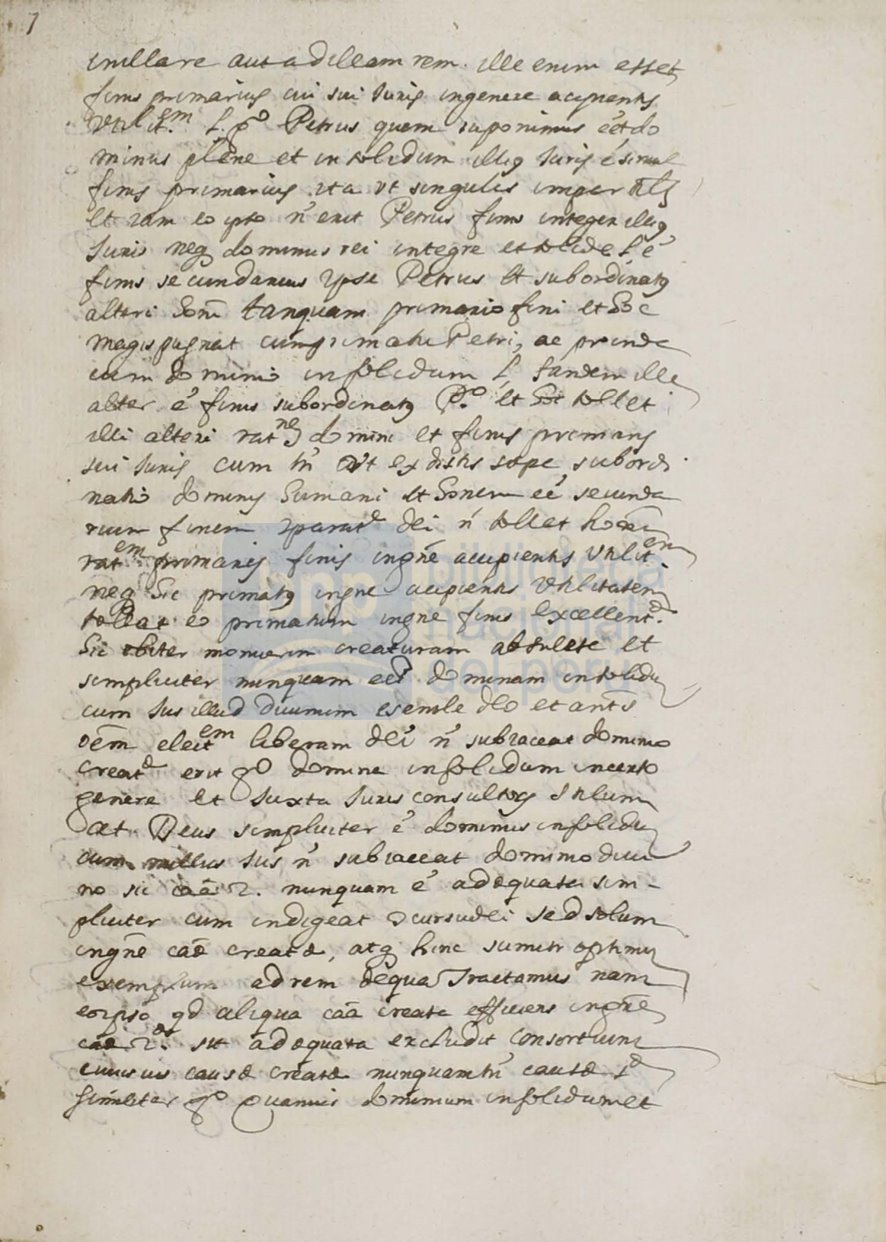 7
in illa re aut ad illam rem. ille enim esset
finis primarius cui sui Juris ingenere accipientis
Utilit.em L. g.o Petrus quem suponimus é et do
minus plene et in solidum illiq Juris é simul
finis primarius ita ut singulis
et iam eo ipso ń erit Petrus finis integer illiq
Juris neq dominus rei integre et solide L é
finis secundarius ipse Petrus et subordinatq
alteri tanquam primario fini et Hoc
magis pugnat cum primatu Petri, ac proinde
cum dominio in solidum L tandem ille
alter é finis subordinatq P.o et Hoc tollet
illi alteri rat.nẽ domini et finis primarij
sui Juris cum tń ut ex dictis sepe subordi
natio dominij Humani et Honem eé secunda
rium finem dei ń tollat
rat.em primarij finis ingñe accipientis Utilit.em
neq Sic primatq ingñe accipientis Utilitatem
tollat eo primatum ingñe finis excellent.
Sic obiter monuerim creaturam absolute et
simpliciter nunquam eé dominam in solidũ
cum Jus illud Divinum et
liberam deí ń subiaceat dominio
creat erit g.o domina in solidum in certo
genere et Juxta Juris consultos stilum
at Deus simpliciter é dominus in solidũ
cum nullius Jus ń subiaceat dominio diui
no sic caã 2. nunquam é adequata sim-
pliciter cum indigeat concursu dei sed solum
ingñe caẽ creatæ, atq hinc sumitr optimũ
exemplum ad rem de qua Tractamus nam
eo ipso qd aliqua caã creata efficiens ingñe
caæ 2. sit adequata excludit consortium
cuius uis causæ creatæ nunquam tń causæ 1.æ
similiter g.o quamuis dominium in solidum et